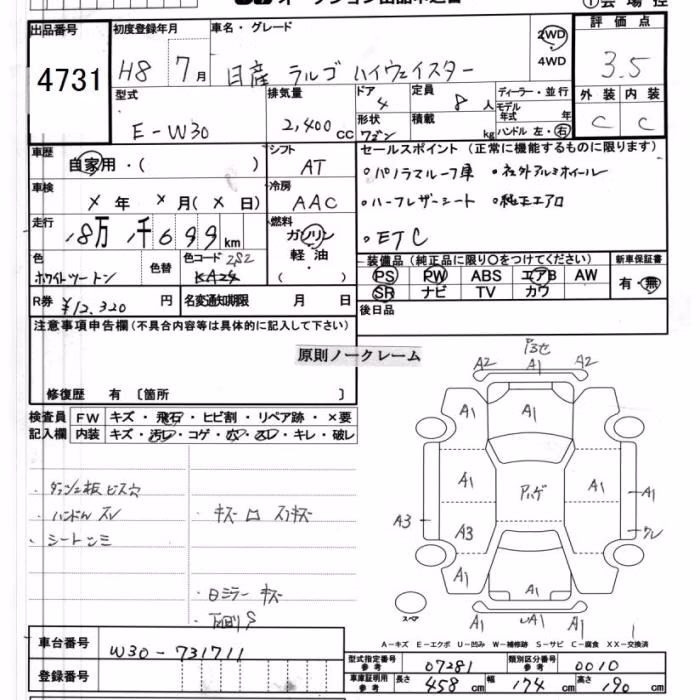 出品番号
4731
初度登録年月
H8 7月
車名・グレード
日産 ラルゴ ハイウェイスター
2WD
4WD
評価点
3.5
外装 内装
C C
型式
E-W30
排気量
2,400cc
ドア
4
形状
ワゴン
定員
8人
積載
kg
ディーラー・並行
モデル年式 年
ハンドル 左・右
車歴
自家用・( )
シフト
AT
車検
× 年 × 月(× 日)
冷房
AAC
走行
18万 1千699km
燃料
ガソリン
軽油
・( )
色
ホワイトツートン
色替
色コード 2S2
KA24
R券 ¥12,320円
名変通知期限 月 日
セールスポイント (正常に機能するものに限ります)
・パノラマルーフ車 ・社外アルミホイール
・ハーフレザーシート ・純正エアロ
・ETC
装備品 (純正品に限り○をつけてください)
PS PW ABS エアB AW
SR ナビ TV カワ
新車保証書
有・無
後日品
注意事項申告欄(不具合内容等は具体的に記入して下さい)
原則ノークレーム
修復歴 有 〔箇所 〕
検査員記入欄
FW キズ・飛石・ヒビ割・リペア跡・×要
内装 キズ・汚レ・コゲ・穴・スレ・キレ・破レ
・ダッシュ板 ビス穴
・ハンドル スレ
・シート シミ
・Bミラー キズ
A2 A1 A2
A1 A1
A1 アハゲ A1
A3 A3 A1
A1 A1
A1 A1
スペア
A-キズ E-エクボ U-凹み W-補修跡 S-サビ C-腐食 XX-交換済
車台番号
W30-731711
登録番号
型式指定番号 参考 07281
類別区分番号 参考 0010
車庫証明用 参考 長さ 458cm 幅 174cm 高さ 190cm